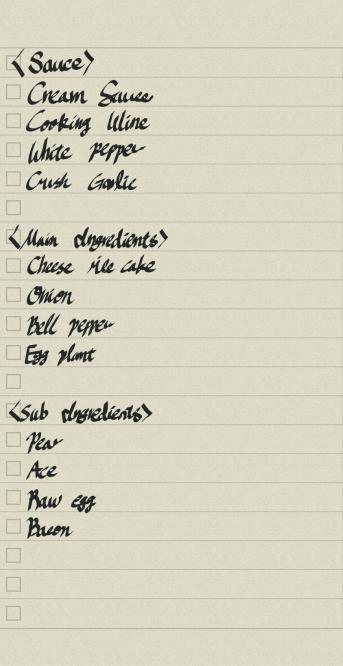 <Sauce>
Cream Sauce
Cooking Wine
White pepper
Crush Garlic
<Main Ingredients>
Cheese rice cake
Onion
Bell pepper
Egg plant
<Sub Ingredients>
Pear
Ace
Raw egg
Bacon